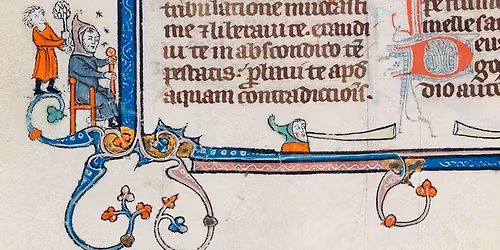 tribulatione inuocasti
me ⁊ liberaui te. exaudi
ui te in abscondito tē
pestatis: ꝓbaui te apð
aquam contradictiōis.
melle sa
D eu
go
dio aute